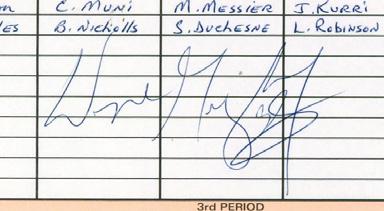 C. MUNI M. MESSIER J. KURRI
ES B. Nicholls S. DUCHESNE L. ROBINSON
3rd PERIOD